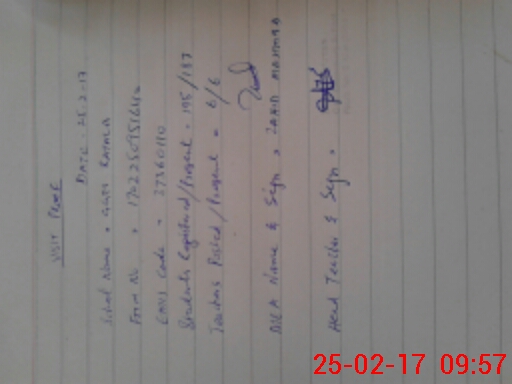 VISIT PROOF
DATE 25.2.17
School Name = GGPS
Form No =
EMIS Code = 37360110
Students Registered/Present = 195/187
Teachers Posted/Present = 6/6
MEA Name & Sign = ZAHID MAHMOOD
Head Teacher & Sign =
25-02-17 09:57